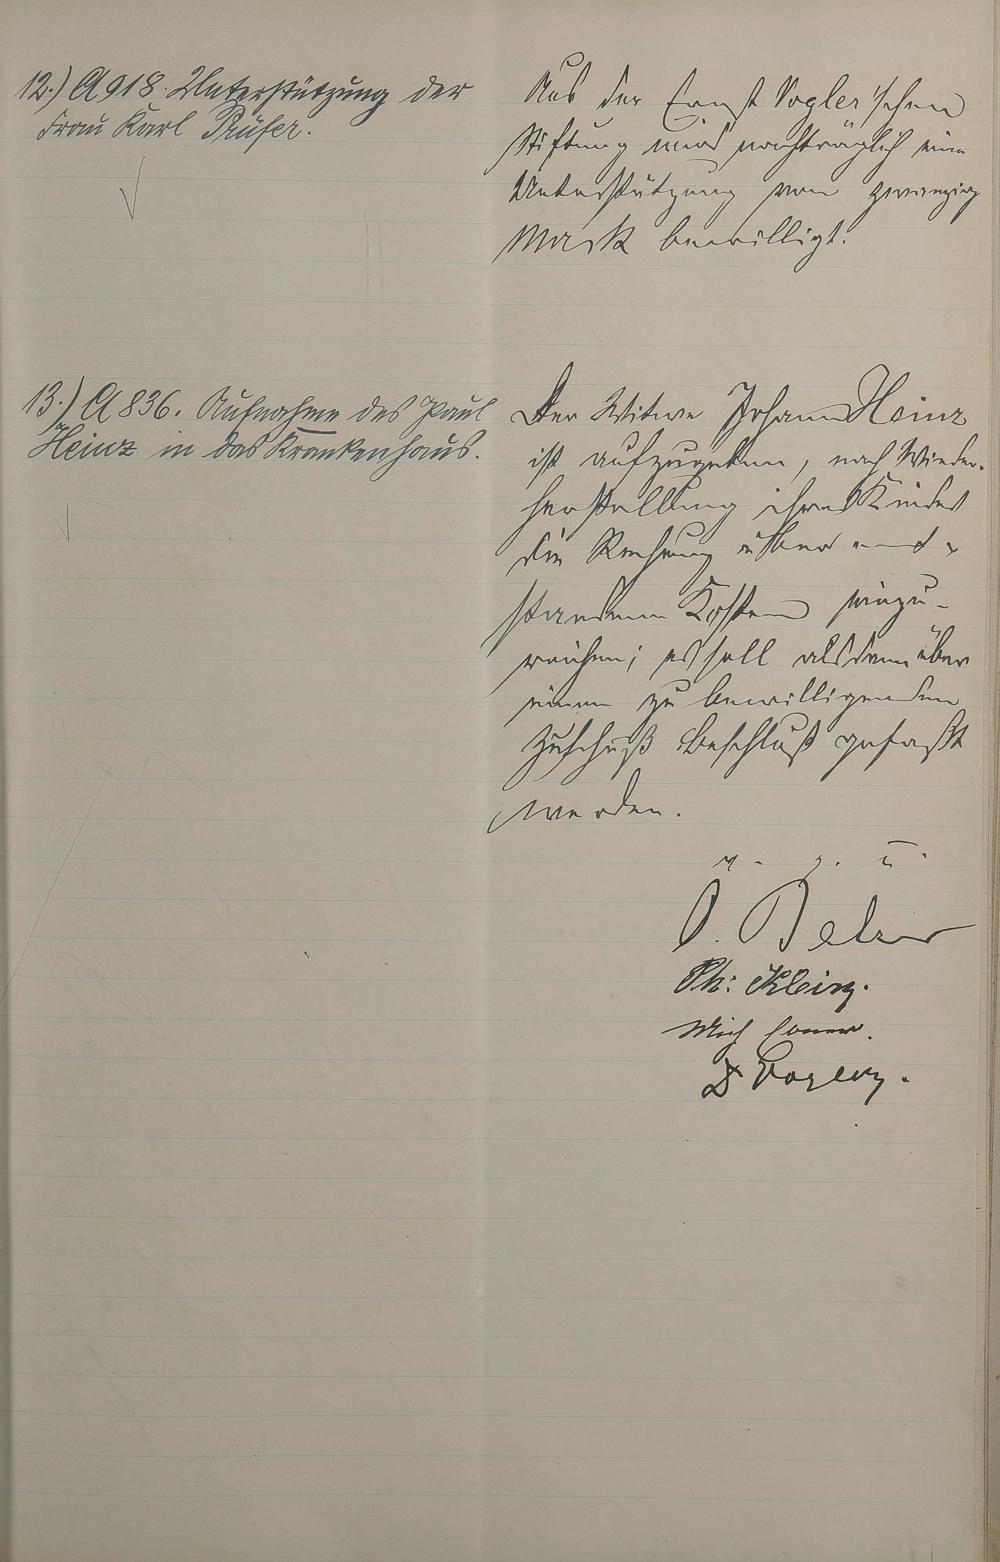 12.) A 918. Unterstützung der
Frau Karl Prüfer.
Aus der Ernst Vogler'schen
Stiftung wird nachträglich eine
Unterstützung von zwanzig
Mark bewilligt.
13.) A 836. Aufnahme des Paul
Heinz in das Krankenhaus.
Der Witwe Johann Heinz
ist aufzugeben, nach Wieder-
herstellung ihres Kindes
die Rechnung über ent-
standenen Kosten einzu-
reichen; es soll alsdann über
einen zu bewilligenden
Zuschuß Beschluß gefaßt
werden.
v. g. u.
Ph: Klein.